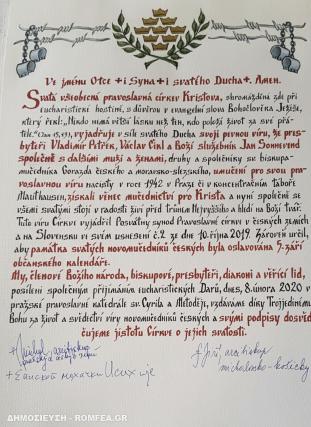 Ve jménu Otce + i Syna + i svatého Ducha +. Amen.
Svatá všeobecná pravoslavná církev Kristova, shromážděná zde při
eucharistické hostině, s důvěrou v evangelní slova Bohočlověka Ježíše,
který řekl: "Nikdo nemá větší lásku než ten, kdo položí život za své přá-
tele." (Jan 15,13), vyjadřuje v síle svatého Ducha svoji pevnou víru, že pres-
byteři Vladimír Petřek, Václav Čikl a Boží služebník Jan Sonnevend
společně s dalšími muži a ženami, druhy a společníky sv. biskupa-
mučedníka Gorazda českého a moravsko-slezského, umučení pro svou pra-
voslavnou víru nacisty v roce 1942 v Praze či v koncentračním táboře
Mauthausen, získali věnec mučednictví pro Krista a nyní společně se
všemi svatými stojí v radosti živí před trůnem Nejvyššího a hledí na Boží tvář.
Tuto víru Církve vyjádřil Posvátný synod Pravoslavné církve v českých zemích
a na Slovensku ve svém usnesení č.2. ze dne 10. října 2019. Zároveň určil,
aby památka svatých novomučedníků českých byla oslavována 5. září
občanského kalendáře.
My, členové Božího národa, biskupové, presbyteři, diakoni a věřící lid,
posíleni společným přijímáním eucharistických Darů, dnes, 8. února 2020 v
pražské pravoslavné katedrále sv. Cyrila a Metoděje, vzdáváme díky Trojjedinému
Bohu za život a svědectví víry novomučedníků českých a svými podpisy dosvěd-
čujeme jistotu Církve o jejich svatosti.
+ Michal, arcibiskup
+ Jiří, arcibiskup
michalovsko-košický
+ Епископ
ΔΗΜΟΣΙΕΥΣΗ - ROMFEA.GR